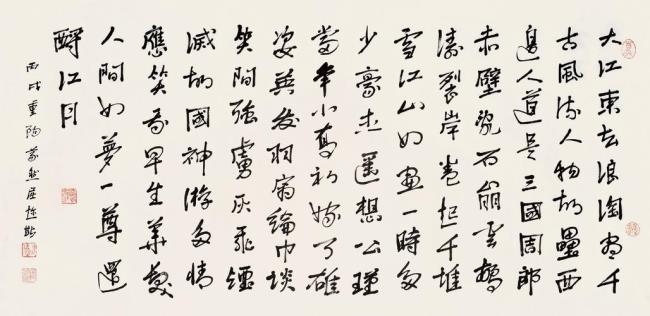 大江東去浪淘盡千
古風流人物故壘西
邊人道是三國周郎
赤壁亂石崩雲驚
濤裂岸卷起千堆
雪江山如畫一時多
少豪杰遥想公瑾
當年小喬初嫁了雄
姿英發羽扇綸巾談
笑間強虜灰飛煙
滅故國神游多情
應笑我早生華髮
人間如夢一尊還
酹江月
丙戌重陽